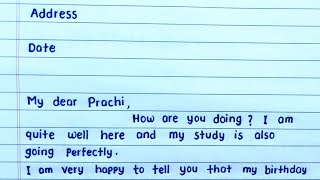 Address
Date
My dear Prachi,
How are you doing? I am
quite well here and my study is also
going Perfectly.
I am very happy to tell you that my birthday